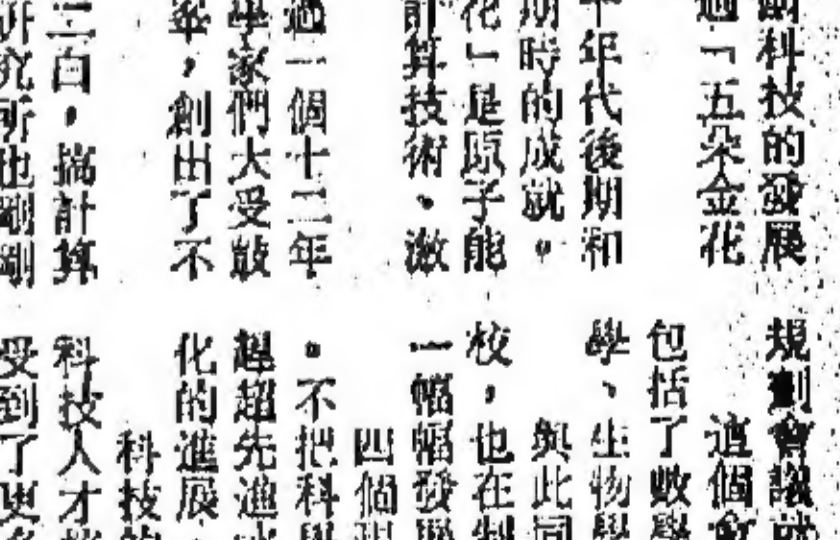 科技的發展
過「五朵金花
十年代後期和
期時的成就。
化」是原子能
計算技術、激
過一個十二年
學家們大受鼓
，創出了不
三白，搞計算
研究所也剛剛
規劃會議就
這個會
包括了數學
學、生物學
與此同
校，也在制
一幅幅發展
四個現
。不把科學
趕超先進
化的進展，
科技的
科技人才
受到了更多